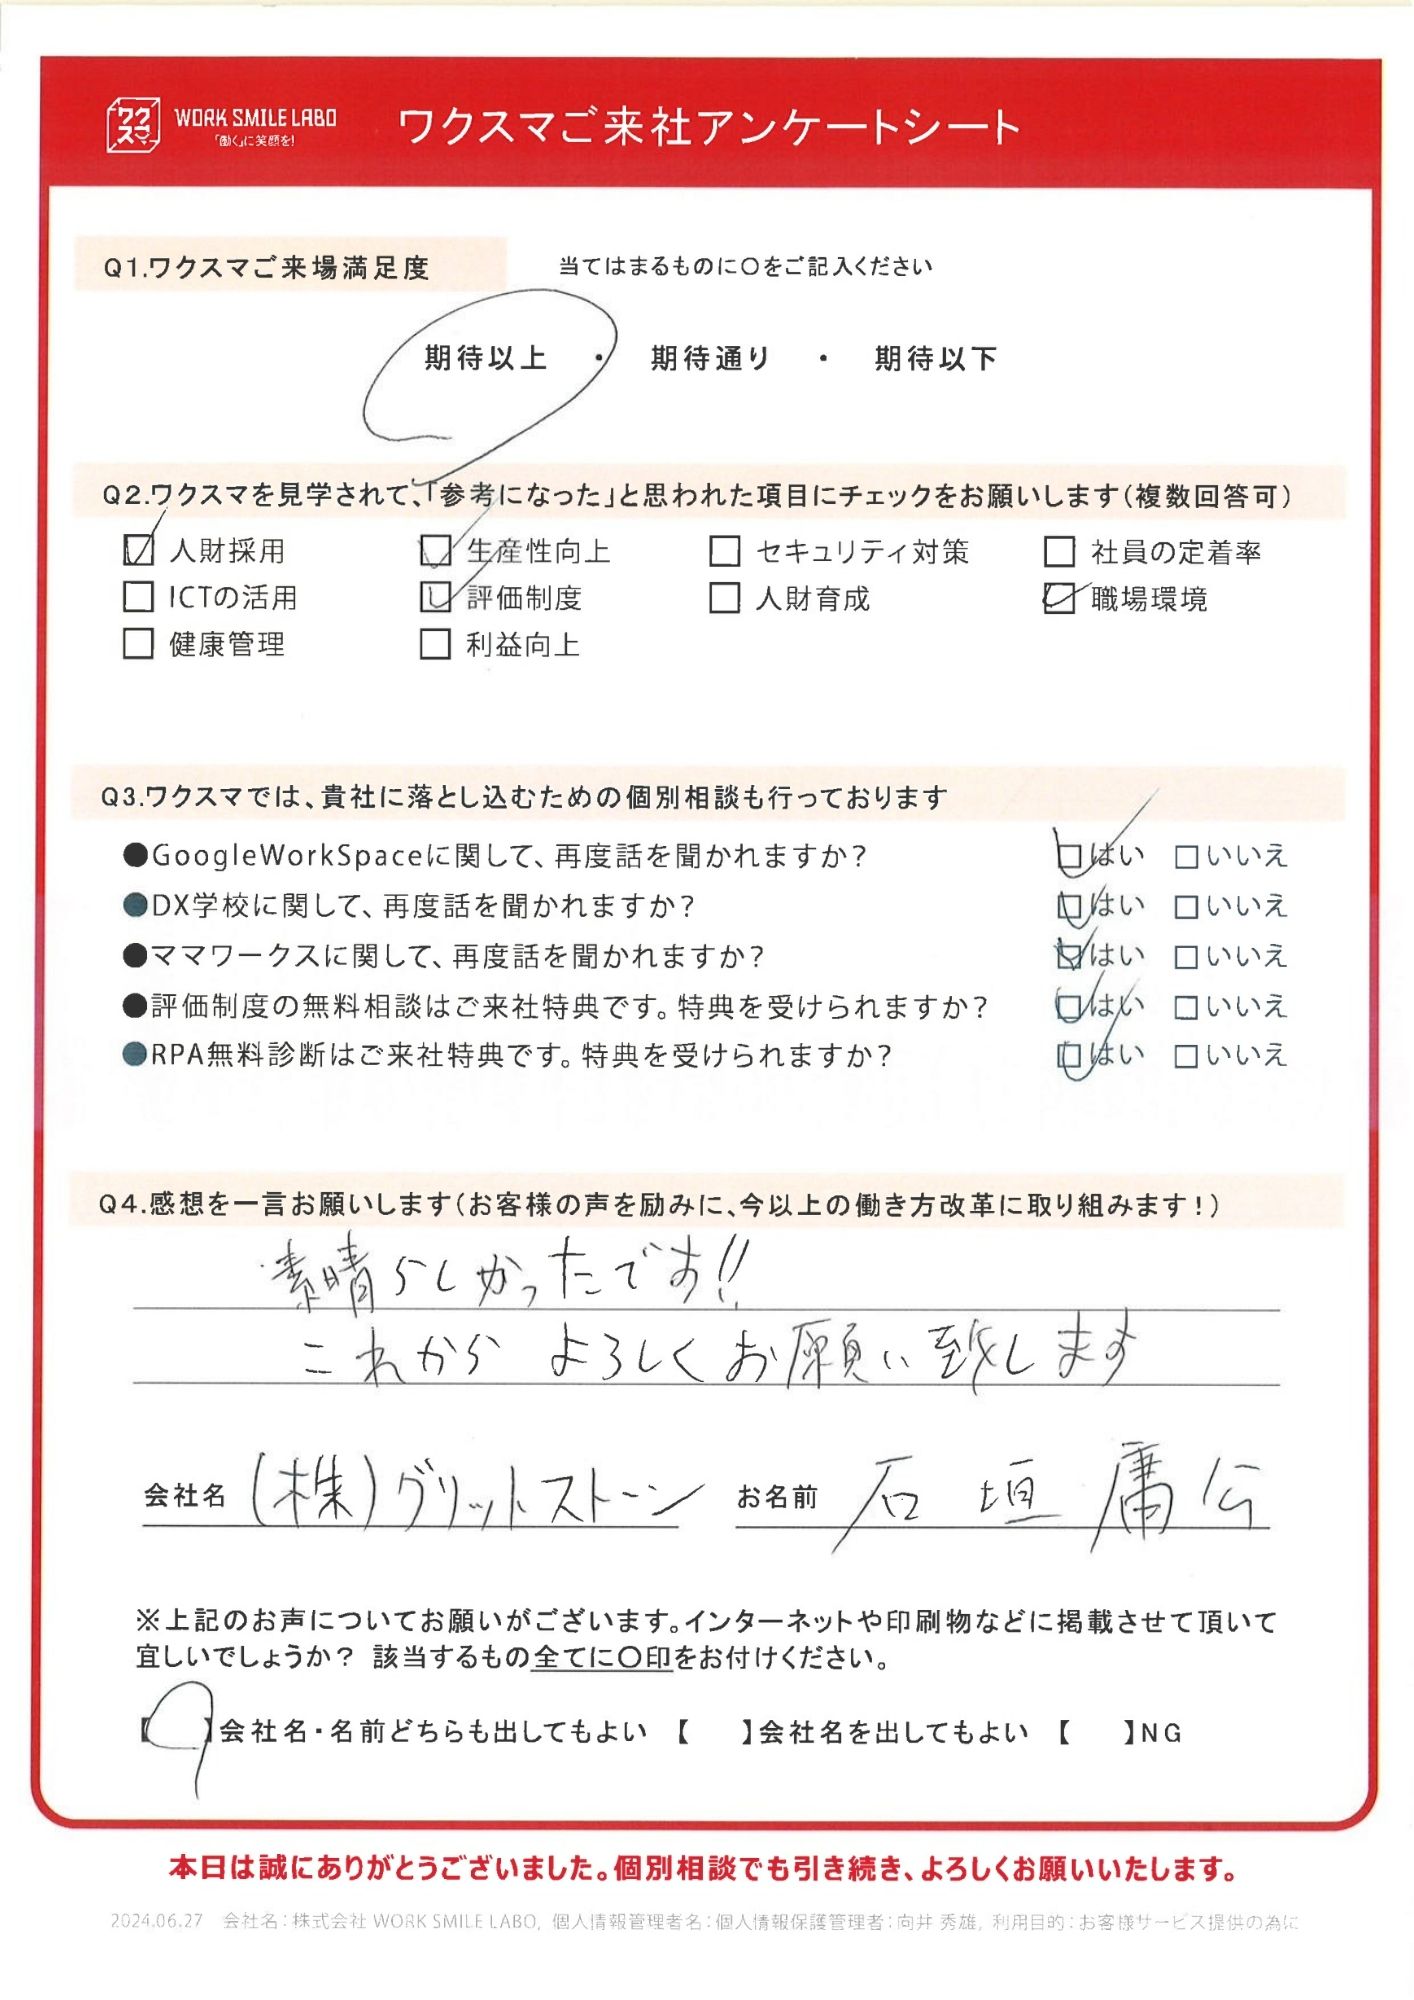 ワクスマ
WORK SMILE LABO
「働く」に笑顔を!
ワクスマご来社アンケートシート
Q1.ワクスマご来場満足度 当てはまるものに〇をご記入ください
期待以上 ・ 期待通り ・ 期待以下
Q2.ワクスマを見学されて、「参考になった」と思われた項目にチェックをお願いします(複数回答可)
☑ 人財採用 ☑ 生産性向上 □ セキュリティ対策 □ 社員の定着率
□ ICTの活用 ☑ 評価制度 □ 人財育成 ☑ 職場環境
□ 健康管理 □ 利益向上
Q3.ワクスマでは、貴社に落とし込むための個別相談も行っております
●GoogleWorkSpaceに関して、再度話を聞かれますか? ☑はい □いいえ
●DX学校に関して、再度話を聞かれますか? ☑はい □いいえ
●ママワークスに関して、再度話を聞かれますか? ☑はい □いいえ
●評価制度の無料相談はご来社特典です。特典を受けられますか? ☑はい □いいえ
●RPA無料診断はご来社特典です。特典を受けられますか? ☑はい □いいえ
Q4.感想を一言お願いします(お客様の声を励みに、今以上の働き方改革に取り組みます!)
素晴らしかったです!!
これから よろしくお願い致します
会社名 (株)グリットストーン お名前 石垣庸公
※上記のお声についてお願いがございます。インターネットや印刷物などに掲載させて頂いて
宜しいでしょうか? 該当するもの全てに〇印をお付けください。
【〇】会社名・名前どちらも出してもよい 【 】会社名を出してもよい 【 】NG
本日は誠にありがとうございました。個別相談でも引き続き、よろしくお願いいたします。
2024.06.27 会社名:株式会社 WORK SMILE LABO, 個人情報管理者名:個人情報保護管理者:向井 秀雄, 利用目的:お客様サービス提供の為に